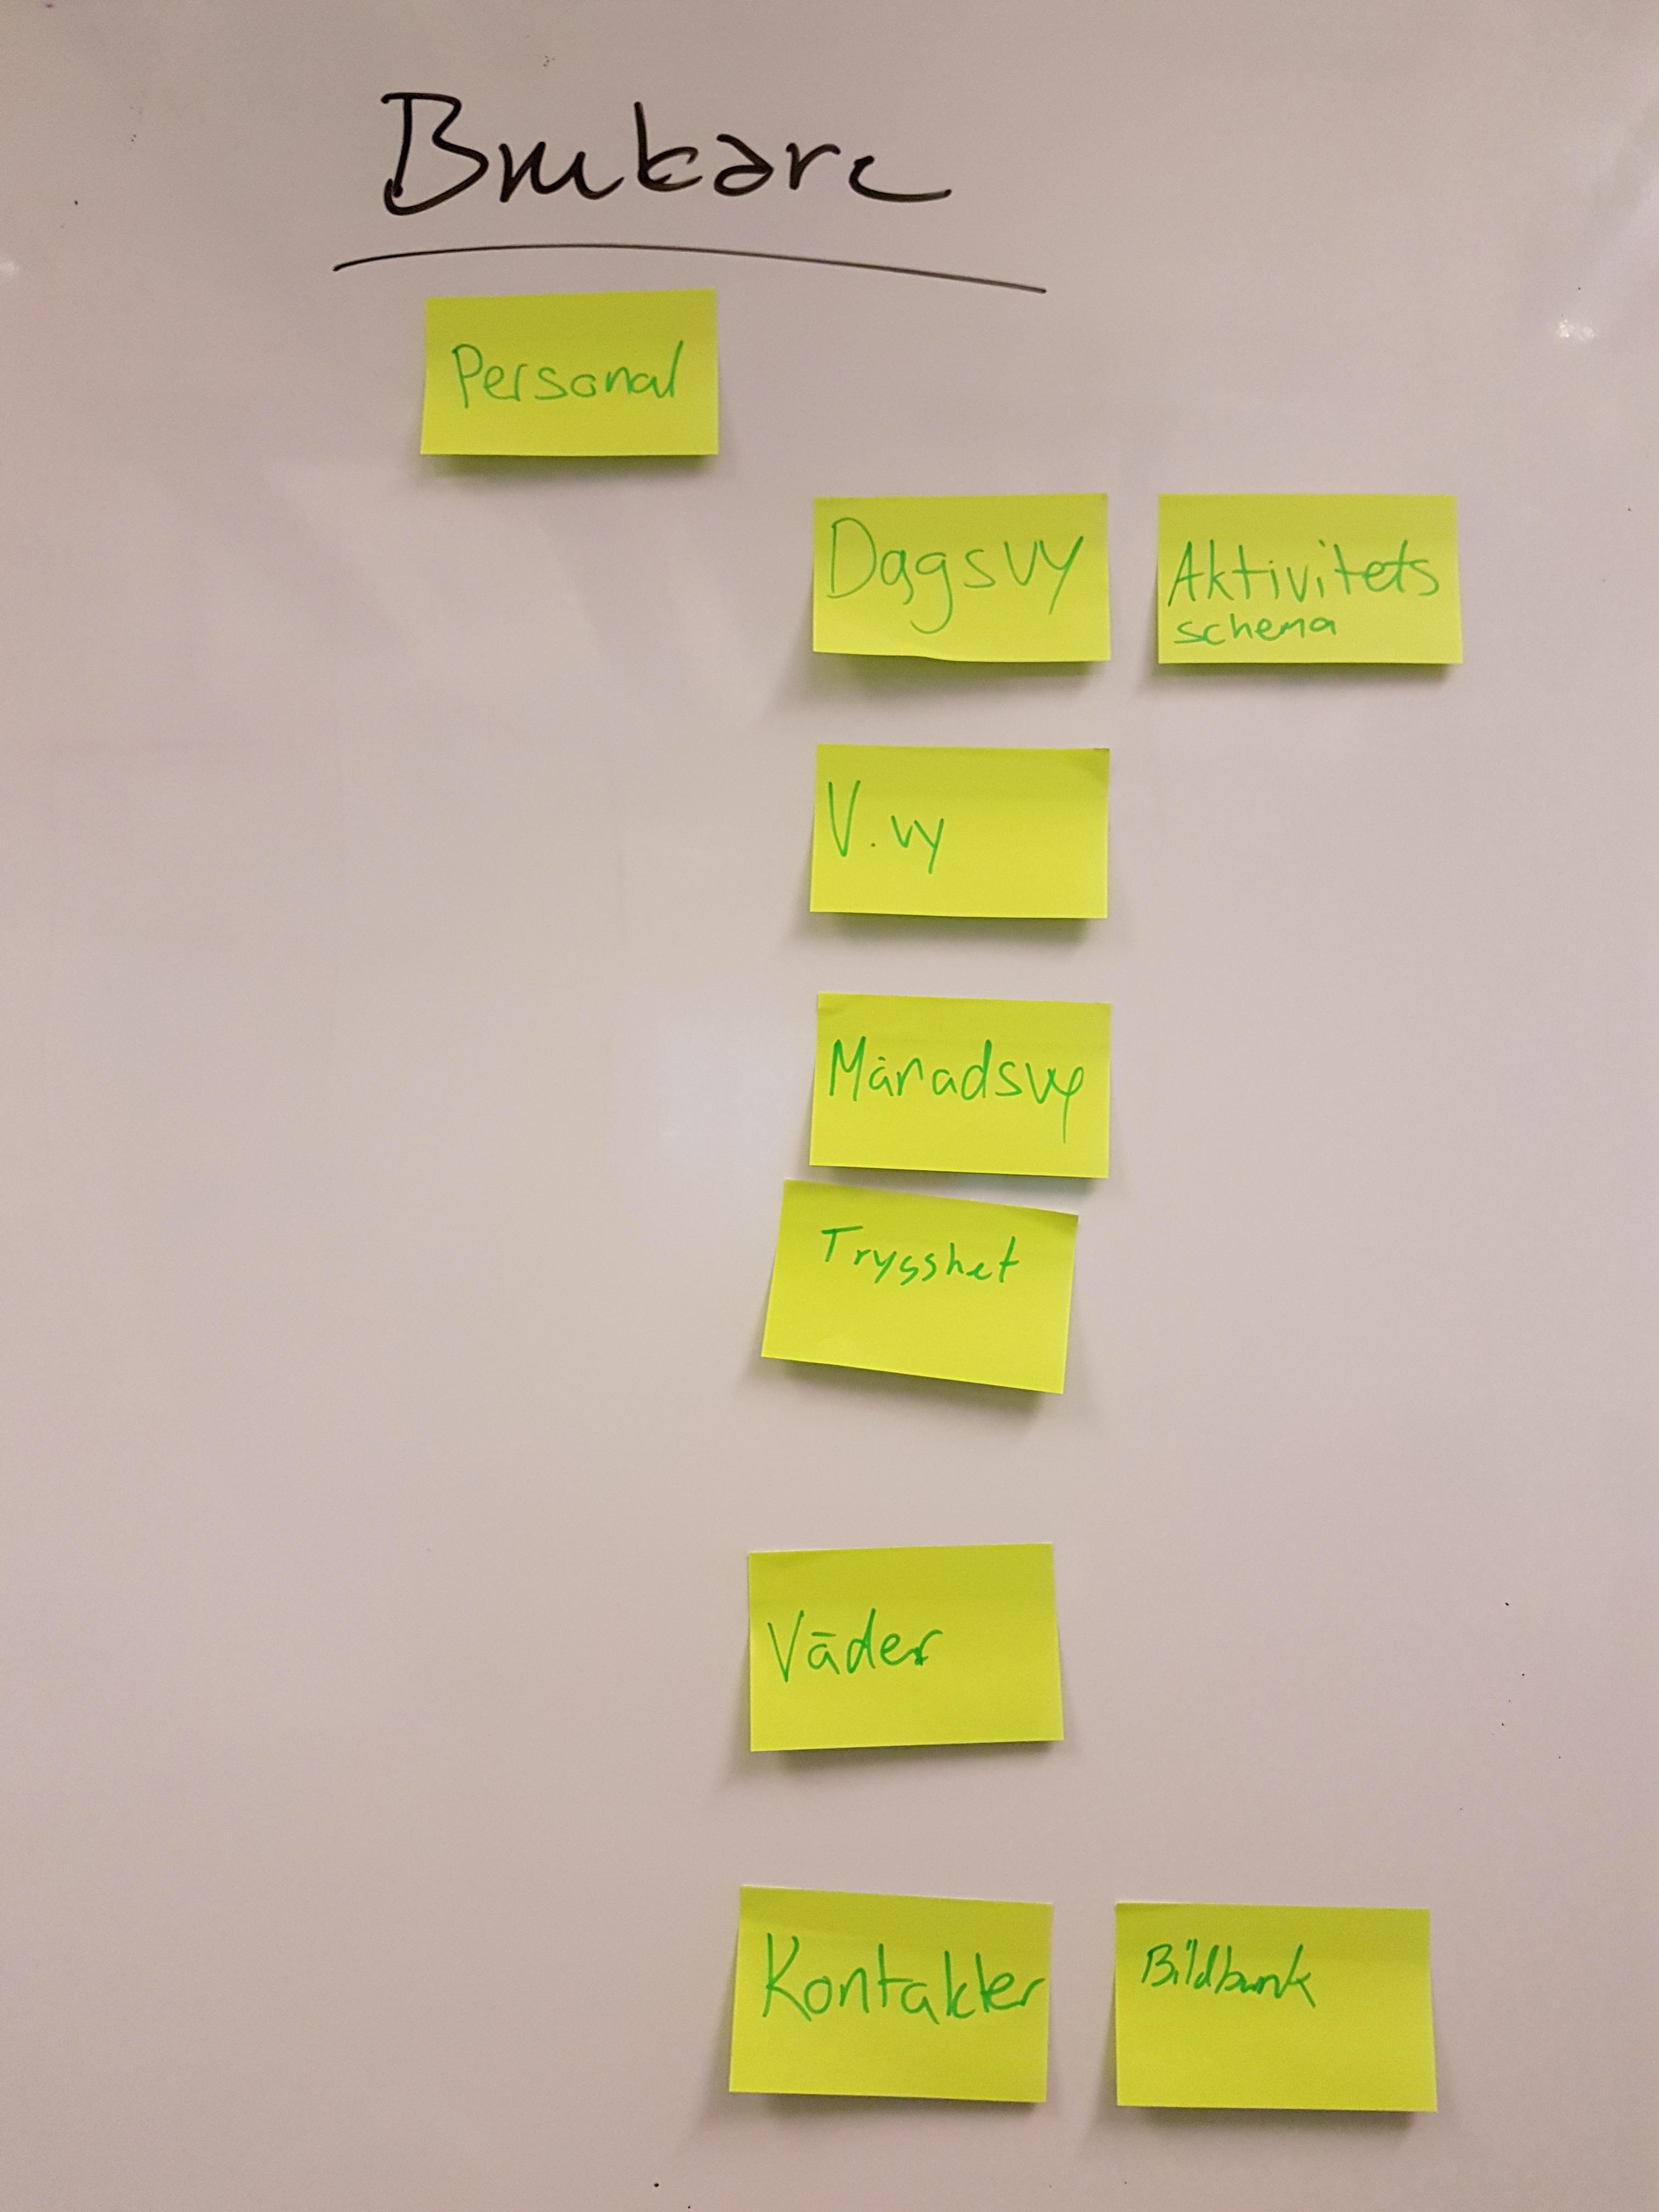 Brukare
Personal
Dagsvy
Aktivitets
schema
V.vy
Månadsvy
Trygghet
Väder
Kontakter
Bildbank